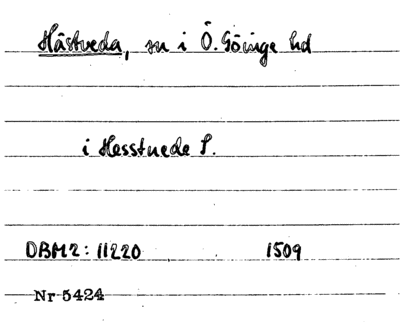 Hästveda, sn i Ö. Göinge hd
i Hesstuede S.
DBM2: 11220 1509
Nr 5424